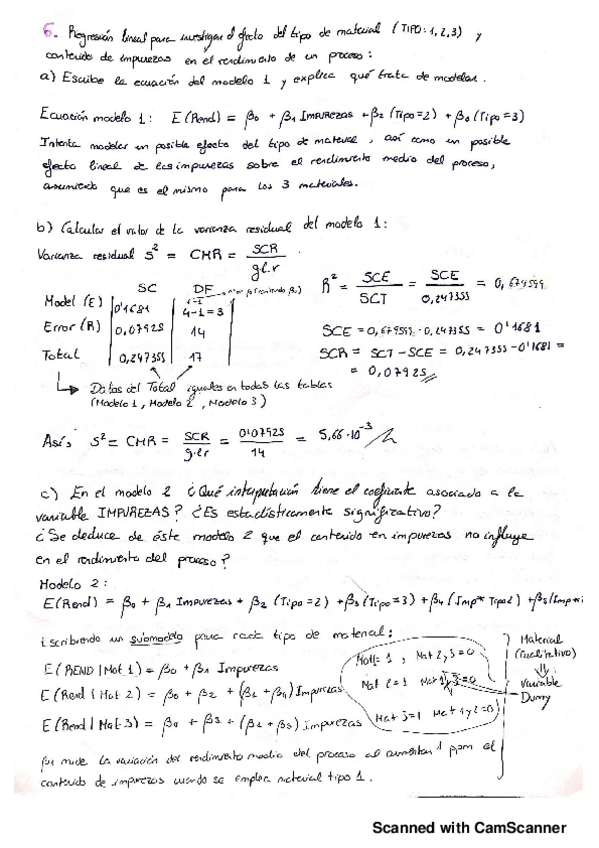 6. Regresión lineal para investigar el efecto del tipo de material (TIPO: 1, 2, 3) y
contenido de impurezas en el rendimiento de un proceso:
a) Escribe la ecuación del modelo 1 y explica qué trata de modelar.
Ecuación modelo 1: E(Rend) = β0 + β1 Impurezas + β2 (Tipo=2) + β0 (Tipo=3)
Intenta modelar un posible efecto del tipo de material, así como un posible
efecto lineal de las impurezas sobre el rendimiento medio del proceso,
asumiendo que es el mismo para los 3 materiales.
b) Calcular el valor de la varianza residual del modelo 1:
Varianza residual s² = CMR = SCR / gl.r
SC DF
Model (E) 0'1681 4-1=3
Error (R) 0,07925 14
Total 0,247355 17
R² = SCE / SCT = SCE / 0,247355 = 0,679599
SCE = 0,679599 · 0,247355 = 0'1681
SCR = SCT - SCE = 0,247355 - 0'1681 =
= 0,07925
Datos del Total iguales en todas las tablas
(Modelo 1, Modelo 2, Modelo 3)
Así, s² = CMR = SCR / g.l.r = 0'07925 / 14 = 5,66·10⁻³
c) En el modelo 2 ¿Qué interpretación tiene el coeficiente asociado a la
variable IMPUREZAS? ¿Es estadísticamente significativo?
¿Se deduce de éste modelo 2 que el contenido en impurezas no influye
en el rendimiento del proceso?
Modelo 2:
E(Rend) = β0 + β1 Impurezas + β2 (Tipo=2) + β3 (Tipo=3) + β4 (Imp* Tipo2) + β5 (Imp*
Escribiendo un submodelo para cada tipo de material:
E(REND | Mat 1) = β0 + β1 Impurezas
E(Rend | Mat 2) = β0 + β2 + (β1 + β4) Impurezas
E(Rend | Mat 3) = β0 + β3 + (β1 + β5) Impurezas
Mat 1=1, Mat 2 y 3=0
Mat 2=1 Mat 1 y 3=0
Mat 3=1 Mat 1 y 2=0
Material
(cualitativo)
⇓
variable
Dummy
β1 mide la variación del rendimiento medio del proceso al aumentar 1 ppm el
contenido de impurezas cuando se emplea material tipo 1.
Scanned with CamScanner